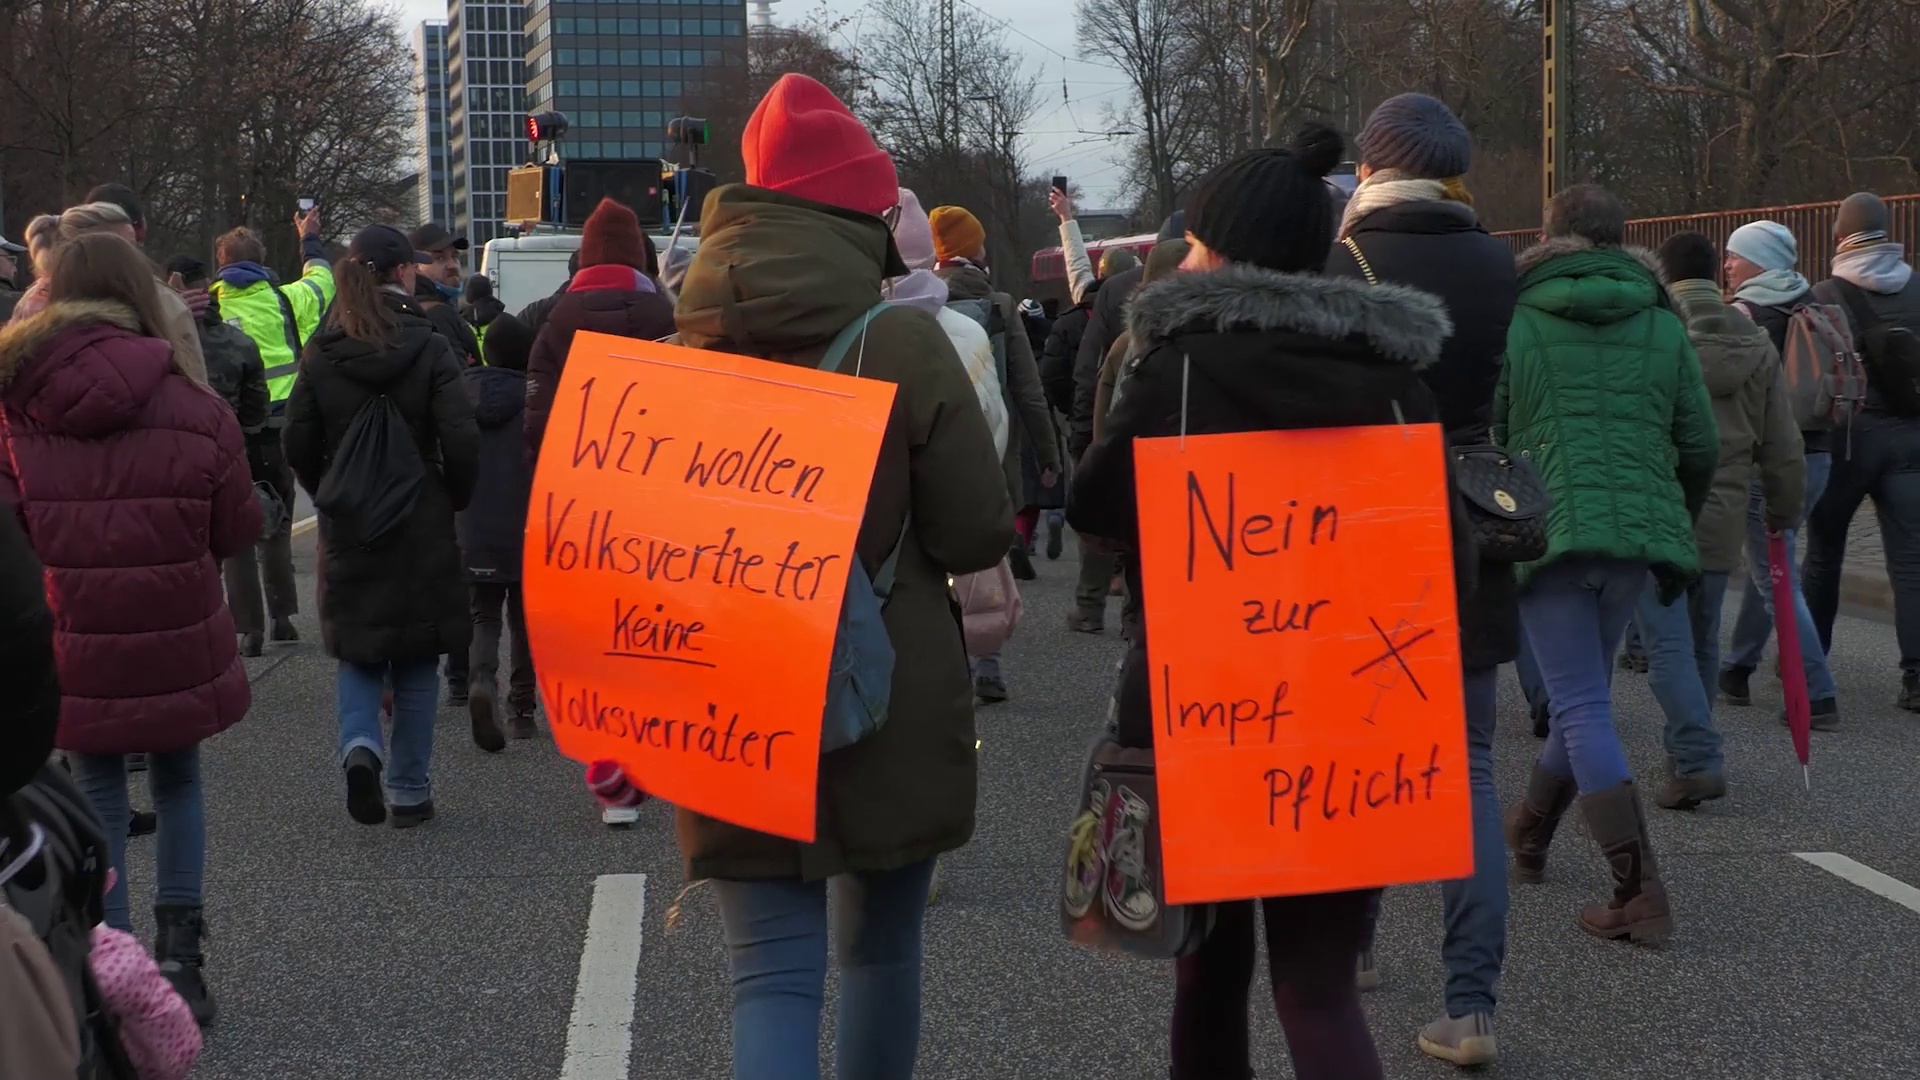 Wir wollen
Volksvertreter
Keine
Volksverräter
Nein
zur
Impf
Pflicht